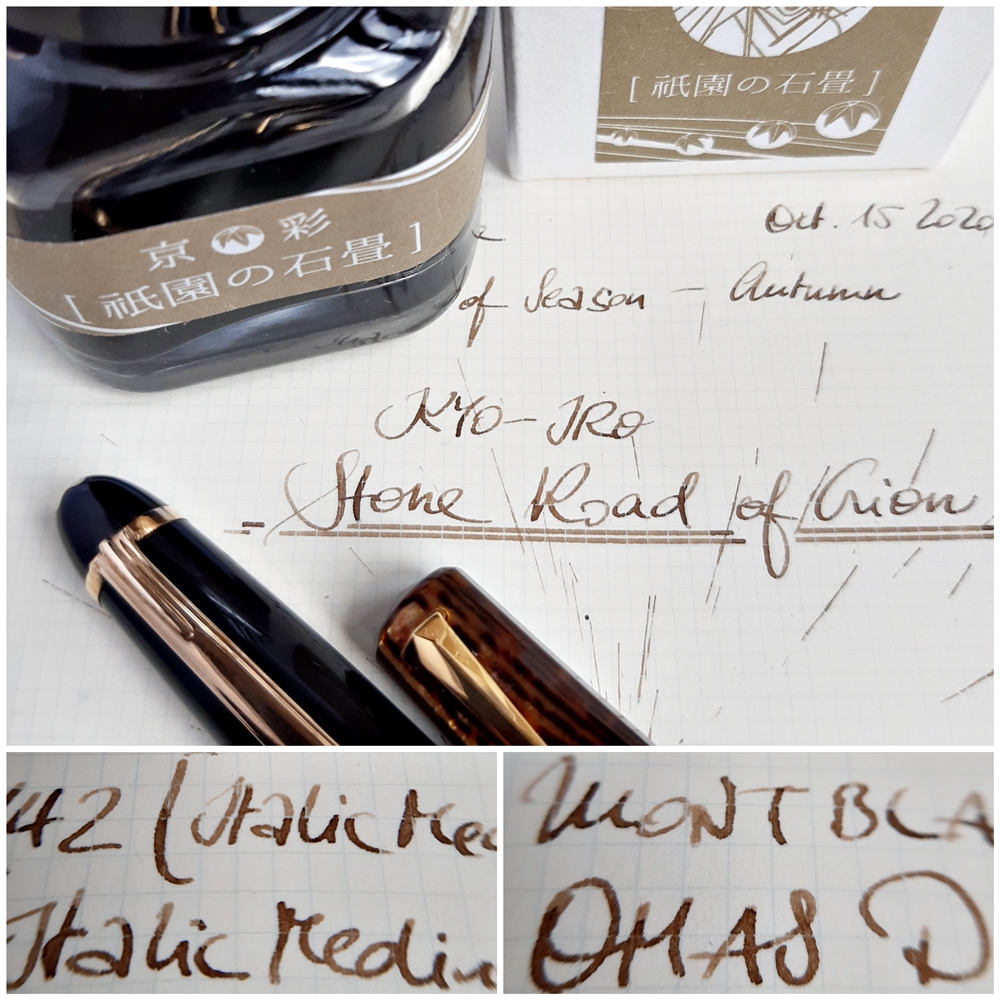 [祇園の石畳]
京 彩
[祇園の石畳]
Oct. 15 2020
of Season - Autumn
KYO-IRO
Stone Road of Gion
42 (Italic Me
Italic Mediu
MONTBLA
OMAS D